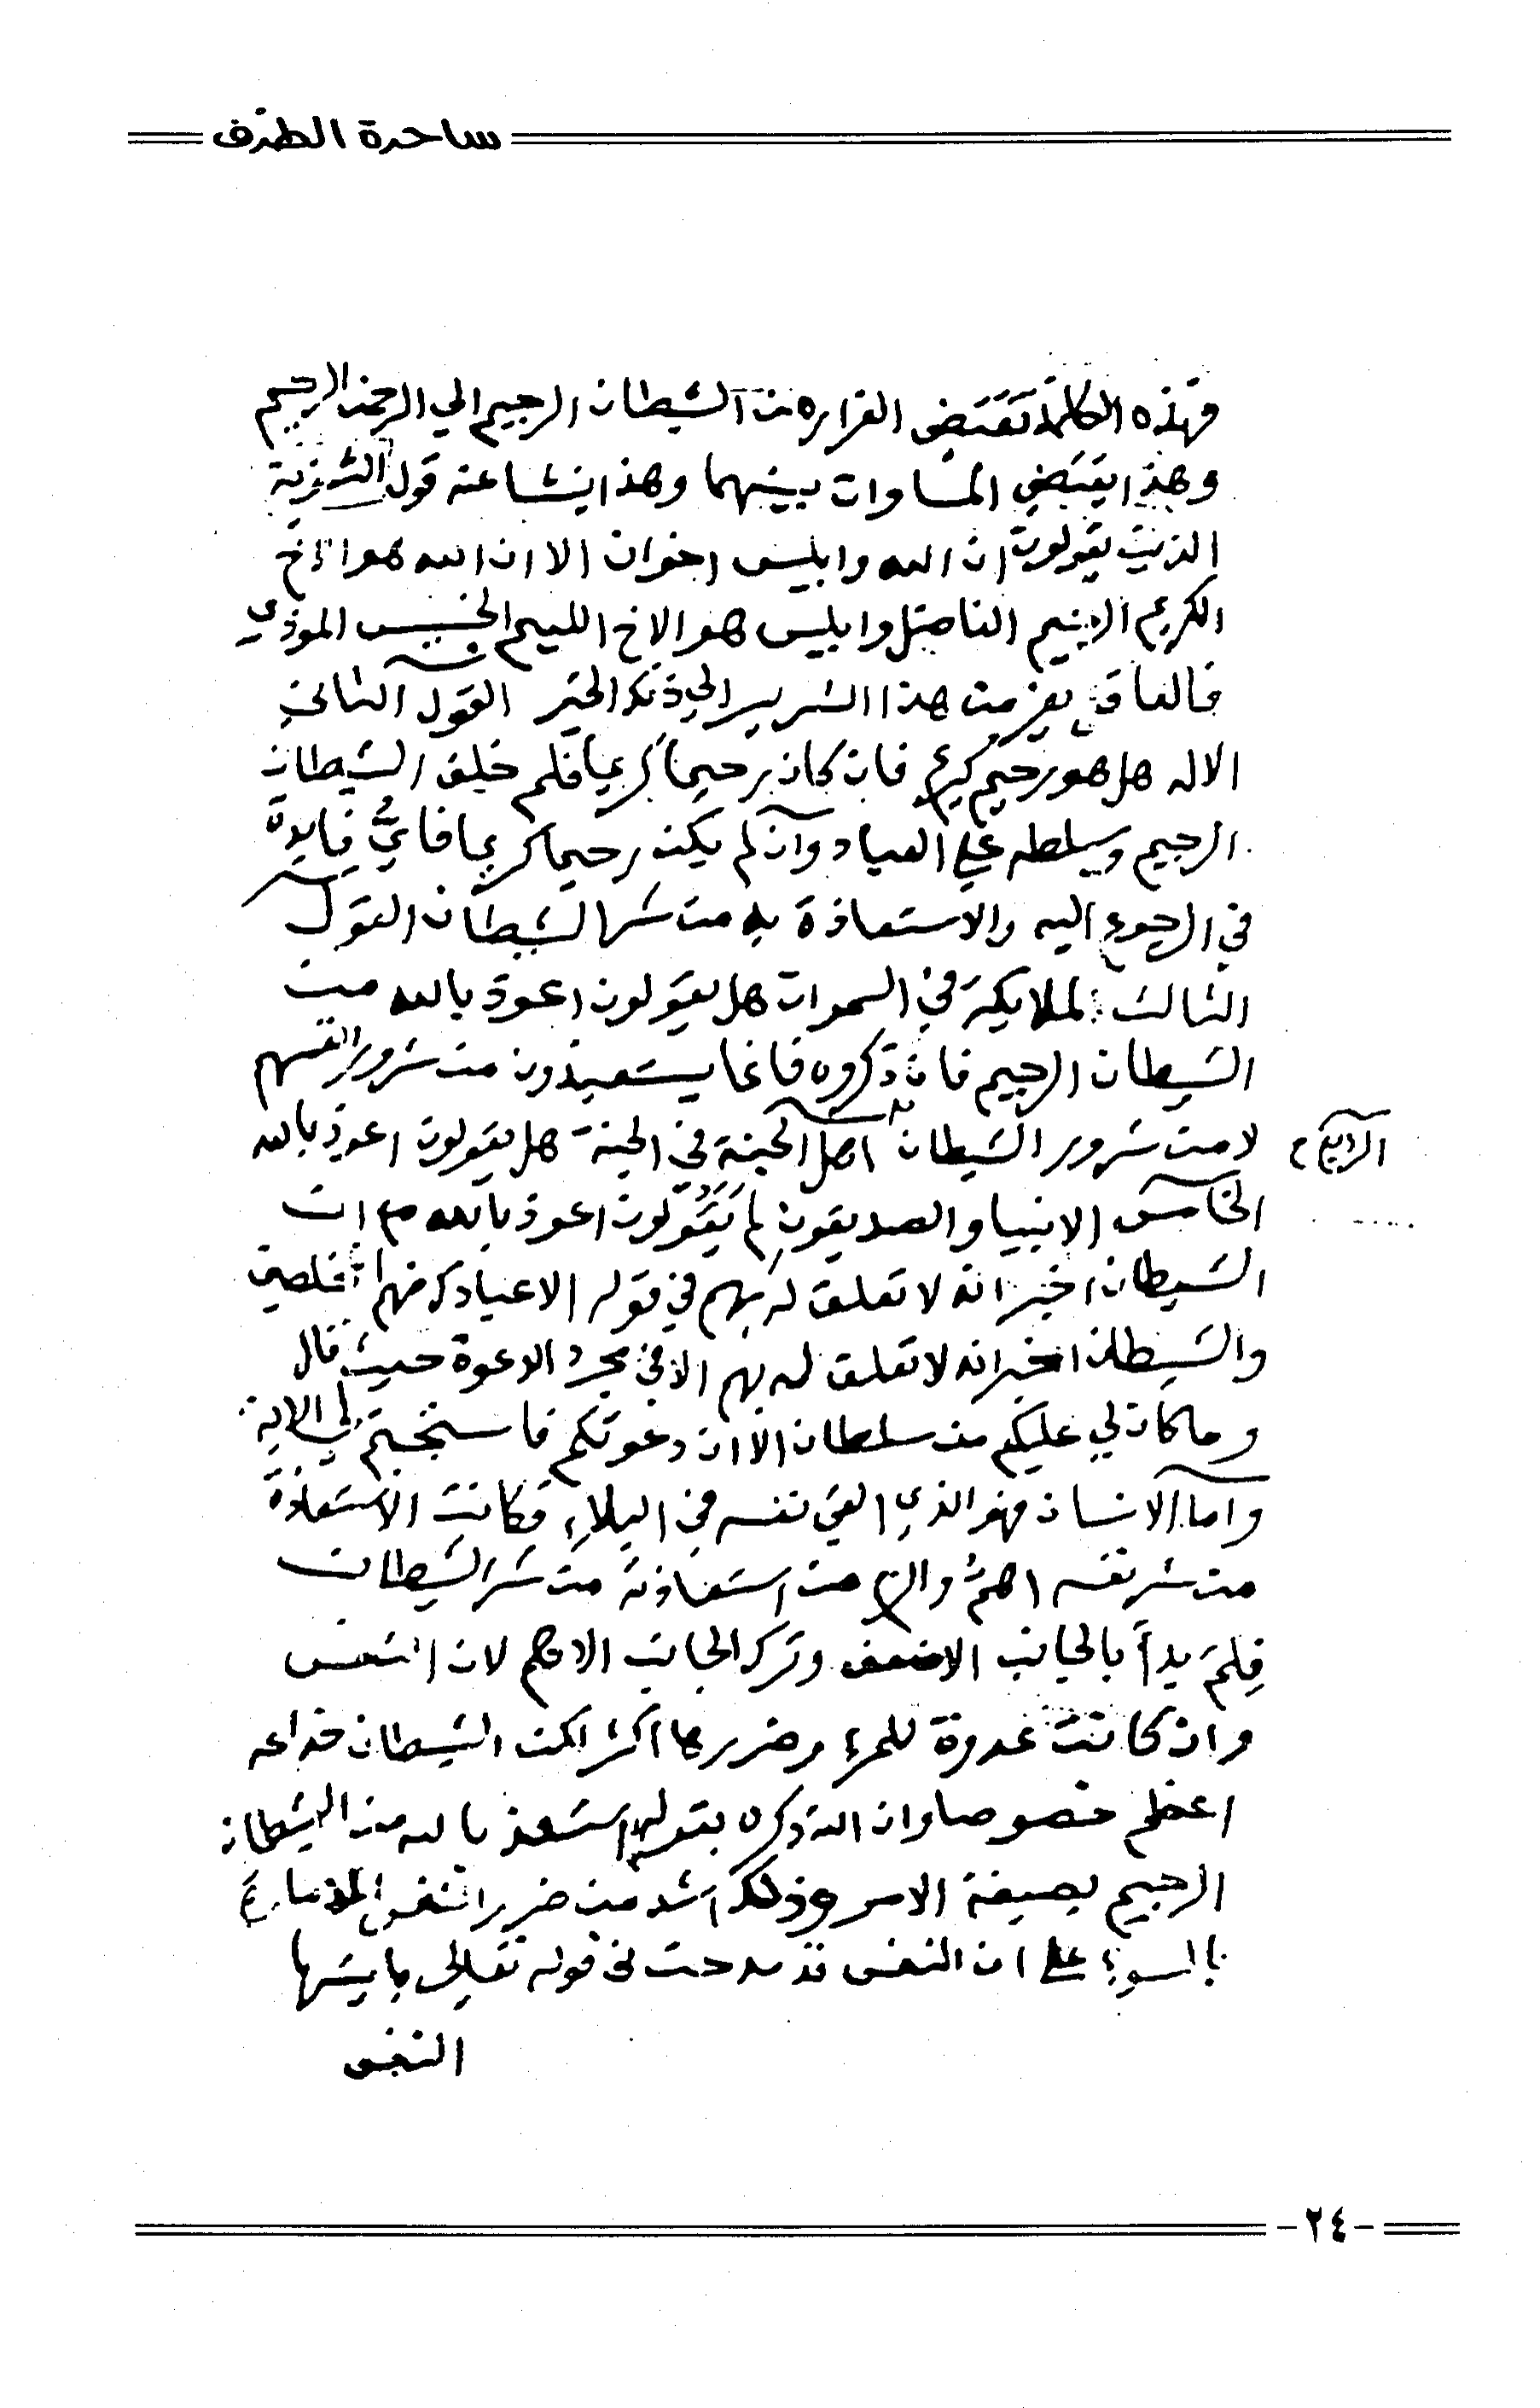 ساحرة الطرف
فهذه الكلمة تقتضي الفرار من الشيطان الرجيم الي الرحمن الرحيم
وهذا يقتضي المساوات بينهما وهذا ينشا عنه قول الثنوية
الذين يقولون ان الله وابليس اخوان الا ان الله هو الاخ
الكريم الرحيم الفاضل وابليس هو الاخ الليم الخسيس الموذي
فالعاقل يفر من هذا الشرير الي ذلك الخير القول الثاني
الاله هل هو رحيم كريم فان كان رحيما كريما فلم خلق الشيطان
الرجيم وسلطه علي العباد وان لم يكن رحيما كريما فاي فايدة
في الرجوع اليه والاستعاذة به من شر الشيطان القول
الثالث الملايكة في السموات هل يقولون اعوذ بالله من
الشيطان الرجيم فان ذكروه فانما يستعيذون من شرور انفسهم
لا من شرور الشيطان اهل الجنة في الجنة هل يقولون اعوذ بالله
الرابع
الخامس الانبيا والصديقون لم يقولون اعوذ بالله مع ان
الشيطان اخبر انه لا تعلق له بهم في قوله الا عبادك منهم المخلصين
والشيطان اخبر انه لا تعلق له بهم الا في مجرد الدعوة حيث قال
وما كان لي عليكم من سلطان الا ان دعوتكم فاستجبتم لي الاية
واما الانسان فهو الذي القي نفسه في البلاء فكانت الاستعاذة
من شر نفسه اهم والزم من استعاذته من شر الشيطان
فلم بدأ بالجانب الاضعف وترك الجانب الاهم لان النفس
وان كانت عدوة للمرء وضررها اكثر لكن الشيطان خداعه
اعظم خصوصا وان الله ذكره بقوله استعذ بالله من الشيطان
الرجيم بصيغة الامر وذلك اشد من ضرر النفس الامارة
بالسوء علي ان النفس قد مدحت في قوله تعالي يا ايتها
النفس
-٢٤-